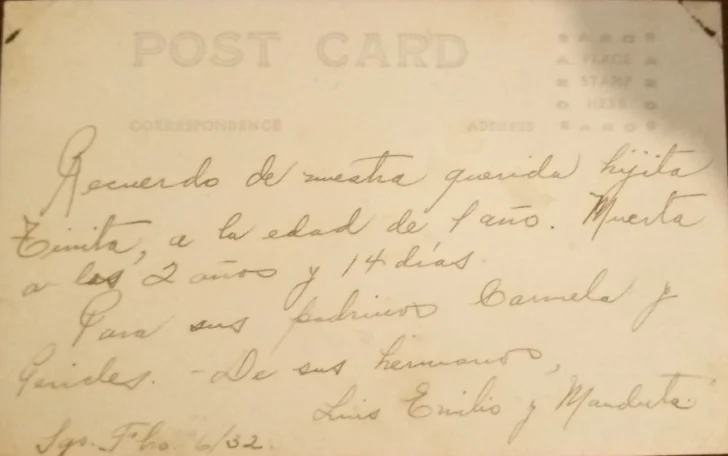 POST CARD
PLACE
STAMP
HERE
CORRESPONDENCE ADDRESS
Recuerdo de nuestra querida hijita
Timita, a la edad de 1 año. Muerta
a los 2 años y 14 días.
Para sus padrinos Carmela y
Perícles. - De sus hermanos,
Luis Emilio y Manduta
Sgo. Fbo. 6/32.